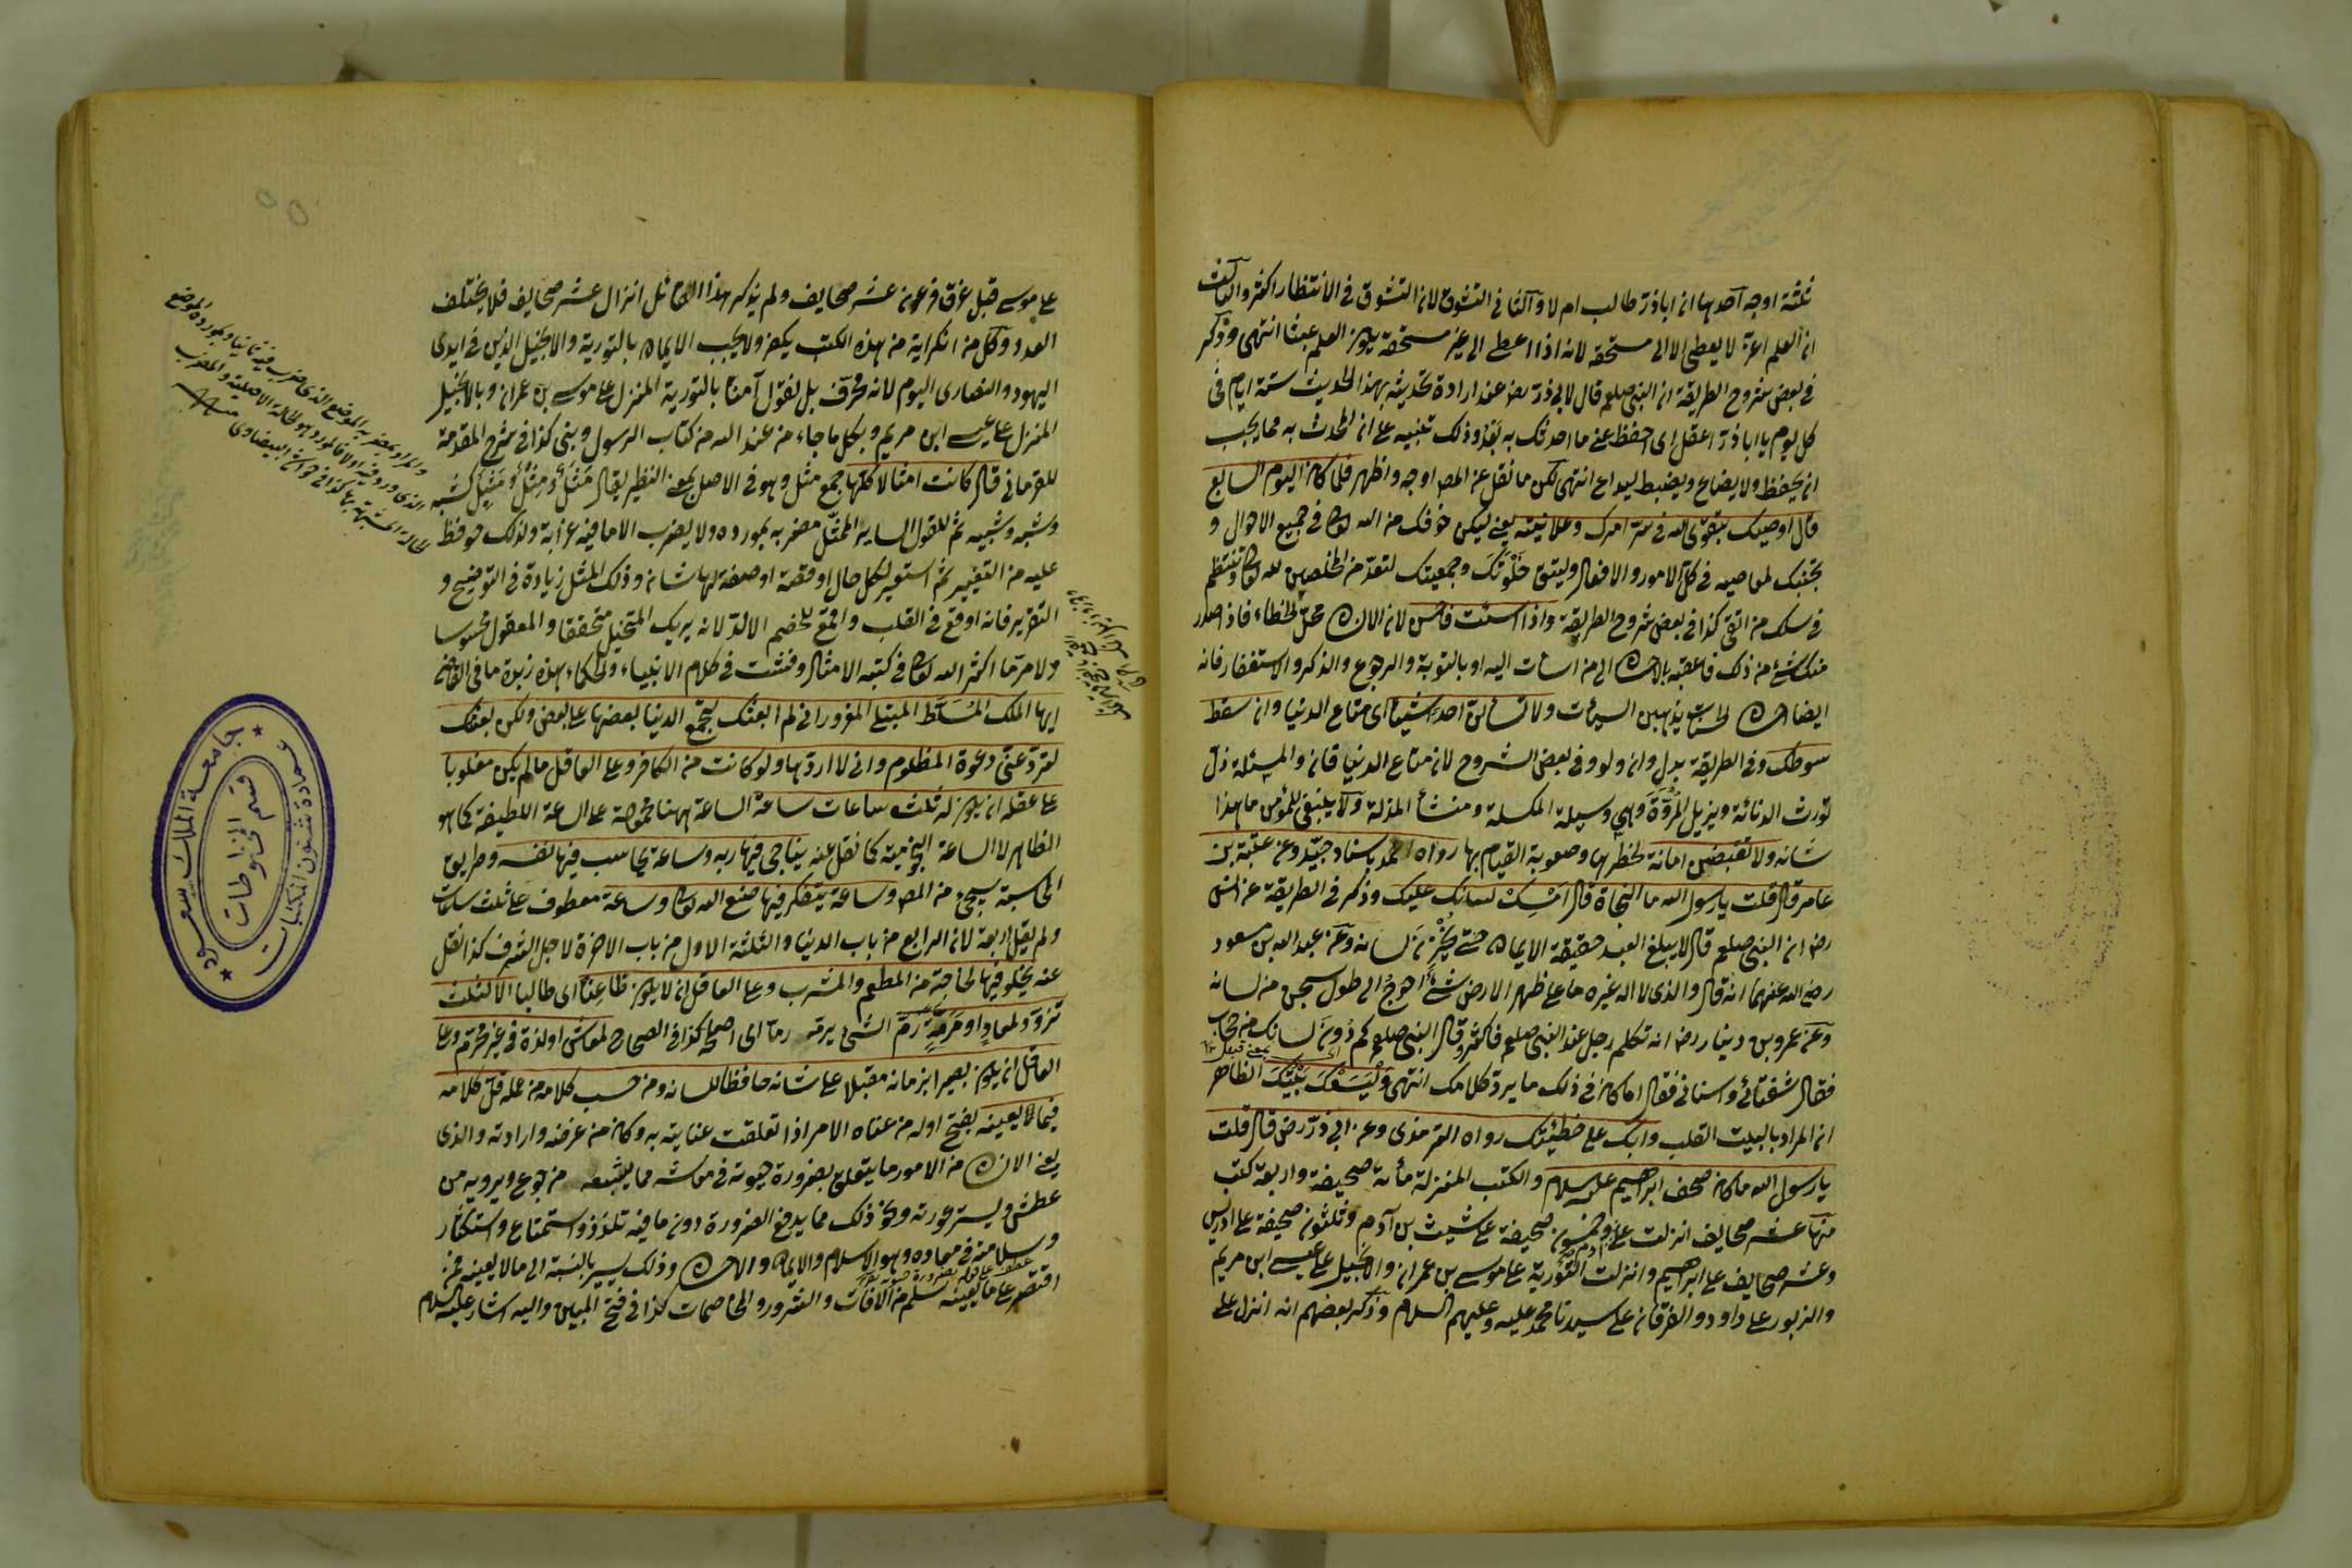 ثلثة اوجه احدها ان اباذر طالب ام لا والثانى التشوق لان التشوق فى الانتظار اكثر والثالث
ان العلم اعز لا يعطى الا الى مستحقه لانه اذا اعطى الى غير مستحقه يكون العلم عبثا انتهى وذكر
فى بعض شروح الطريقة ان النبى صلعم قال لابى ذر رض عند ارادة تحديثه بهذا الحديث ستة ايام فى
كل يوم يا اباذر اعقل اى احفظ عنى ما احدثك به بعد وذلك تنبيه على ان المحدث به مما يجب
ان يحفظ ولا يضاع ويضبط ليداع انتهى لكن ما نقل عن المص اوجه واظهر فلما كان اليوم السابع
قال اوصيك بتقوى الله فى سر امرك وعلانيته يعنى ليكن خوفك من الله تعالى فى جميع الاحوال و
تجنبك لمعاصيه فى كل الامور والافعال وليتق خلوتك وجمعيتك لتعد من المخلصين لله تعالى وتنتظم
فى سلك من اتقى كذا فى بعض شروح الطريقة واذا اسئت فاحسن لان الانسان محل الخطاء فاذا صدر
منك شئ من ذلك فاعقبه بالاحسان الى من اسات اليه او بالتوبة والرجوع والذكر والاستغفار فانه
ايضا احسان الحسنات يذهبن السيئات ولا تسألن احدا شيئا اى متاع الدنيا وان سقط
سوطك وفى الطريقة بدل وان ولو وفى بعض الشروح لان متاع الدنيا فان والمسئلة ذل
تورث الدنائة ويزيل المروة وهى وسيلة المكسلة ومنشأ المذلة ولا ينبغى للمؤمن ما هذا
شانه ولا تقبضن امانة لخطرها وصعوبة القيام بها رواه احمد باسناد جيد وعن عقبة بن
عامر قال قلت يا رسول الله ما النجاة قال امسك لسانك عليك وذكر فى الطريقة عن انس
رض ان النبى صلعم قال لا يبلغ العبد حقيقة الايمان حتى يخزن لسانه وعن عبد الله بن مسعود
رضى الله عنهما انه قال والذى لا اله غيره ما على ظهر الارض شئ احوج الى طول سجن من لسانه
وعن عمرو بن دينار رض انه تكلم رجل عند النبى صلعم فاكثر وقال النبى صلعم كم دون لسانك من حجاب
فقال شفتائى واسنانى فقال اما كان فى ذلك ما يرد كلامك انتهى وليسعك بيتك الظاهر
ان المراد بالبيت القلب وابك على خطيئتك رواه الترمذى وعن ابى ذر رض قال قلت
يا رسول الله ما كان صحف ابراهيم عليه السلام والكتب المنزلة مأئة صحيفة واربعة كتب
منها عشر صحايف انزلت على آدم وخمسون صحيفة على شيث بن آدم وثلثون صحيفة على ادريس
وعشر صحايف على ابراهيم وانزلت التورية على موسى بن عمران والانجيل على عيسى ابن مريم
والزبور على داود والفرقان على سيدنا محمد عليه وعليهم السلام وذكر بعضهم انه انزل على
على موسى قبل غرق فرعون عشر صحايف ولم يذكر هذا القائل انزال عشر صحايف فلا يختلف
العدد وكل من انكر آية من هذه الكتب يكفر ولا يجب الايمان بالتورية والانجيل الذين فى ايدى
اليهود والنصارى اليوم لانه محرف بل نقول آمنا بالتورية المنزل على موسى بن عمران وبالانجيل
المنزل على عيسى ابن مريم وبكل ما جاء من عند الله من كتاب الرسول ونبى كذا فى شرح المقدمة
للقرمانى قال كانت امثالا كلها جمع مثل وهو فى الاصل بمعنى النظير يقال مثل ومثل ومثيل كشبه
وشبه وشبيه ثم للقول الساير الممثل مضربه بمورده ولا يضرب الا ما فيه غرابة ولذلك حوفظ
عليه من التغيير ثم استعير لكل حال او قصة او صفة لها شان وذلك المثل زيادة فى التوضيح و
التقرير فانه اوقع فى القلب واقمع للخصم الالد لانه يريك المتخيل متحققا والمعقول محسوسا
ولامر ما اكثر الله تعالى فى كتبه الامثال وفشت فى كلام الانبياء والحكماء هذه زبدة ما فى القاضى
ايها الملك المسلط المبتلى المغرور انى لم ابعثك لتجمع الدنيا بعضها على بعض ولكن بعثتك
لترد عنى دعوة المظلوم وانى لا اردها ولو كانت من الكافر وعلى العاقل ما لم يكن مغلوبا
على عقله ان يكون له ثلث ساعات ساعة الساعة ههنا محمولة على الساعة اللطيفة كما هو
الظاهر لا الساعة النجومية كما نقل عنه يناجى فيها ربه وساعة يحاسب فيها نفسه وطريق
المحاسبة سيجئ من المص وساعة يتفكر فيها صنع الله تعالى وساعة معطوف على ثلث ساعات
ولم يقل اربعة لان الرابع من باب الدنيا والثلثة الاول من باب الاخرة لاجل الشرف كذا نقل
عنه يخلو فيها لحاجته من المطعم والمشرب وعلى العاقل ان لا يكون ظاعنا اى طالبا الا لثلث
تزود لمعاد او مرمة رم الشئ يرمه رما اى اصلحه كذا فى الصحاح لمعاش او لذة فى غير محرم وعلى
العاقل ان يكون بصيرا بزمانه مقبلا على شانه حافظا للسانه ومن حسب كلامه من عمله قل كلامه
فيما لا يعينه بفتح اوله من عناه الامر اذا تعلقت عنايته به وكان من غرضه وارادته والذى
يعنى الانسان من الامور ما يتعلق بضرورة حيوته فى معاشه مما يشبعه من جوع ويرويه من
عطش ويستر عورته ونحو ذلك مما يدفع الضرورة دون ما فيه تلذذ واستمتاع واستكثار
وسلامته فى معاده وهو الاسلام والايمان والاحسان وذلك يسير بالنسبة الى ما لا يعينه فمن
اقتصر على ما يعينه سلم من الافات والشرور والمخاصمات كذا فى فتح المبين واليه اشار عليه السلام
جامعة الملك سعود
عمادة شئون المكتبات
قسم المخطوطات